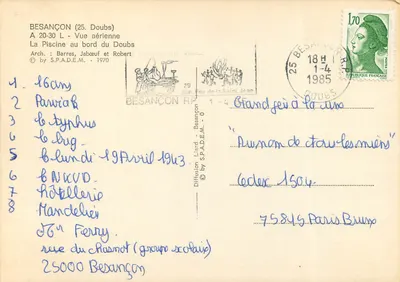 BESANÇON (25. Doubs)
A 20-30 L - Vue aérienne
La Piscine au bord du Doubs
Arch. : Barres, Jabœuf et Robert
© by S.P.A.D.E.M. - 1970
BESANÇON RP
25 BESANÇON R.P.
18H
1-4
1985
DOUBS
1,70
REPUBLIQUE FRANÇAISE
Diffusion L'and - Besançon
© by S.P.A.D.E.M. - 0
1 16 ans
2
3 le typhus
4 le
5 le lundi 19 Avril 1943
6 le NKVD
7 hôtellerie
8 Mandelieu
Ferry
rue du Chasnot (groupe scolaire)
25000 Besançon
Grand jeu à la une
"Au nom de tous les miens"
Cedex 1504
75845 Paris Brune